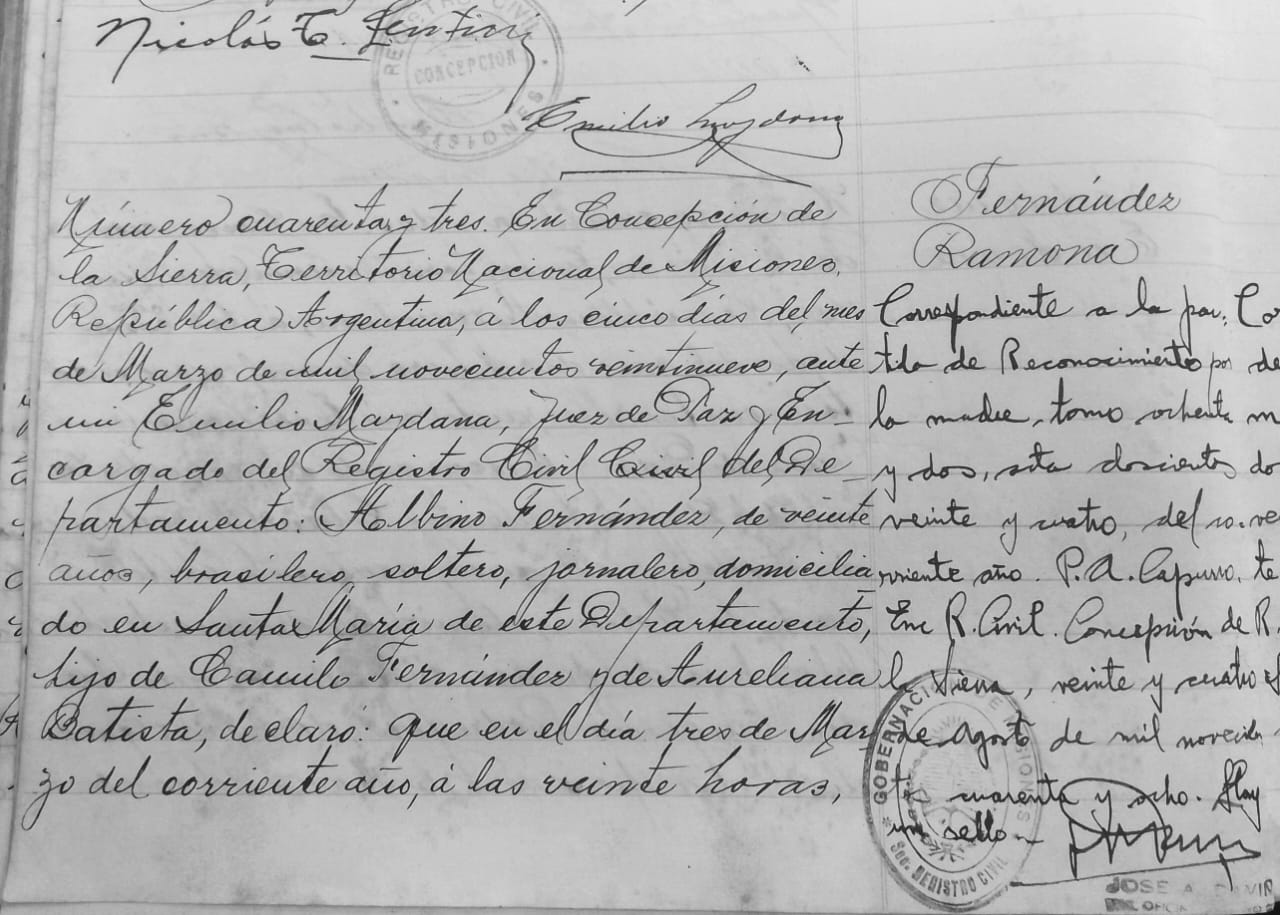 Nicolás T.
REGISTRO CIVIL
CONCEPCION
MISIONES
Emilio Maydana
Número cuarenta y tres. En Concepción de
la Sierra, Territorio Nacional de Misiones,
República Argentina, á los cinco días del mes
de Marzo de mil novecientos veintinueve, ante
mi Emilio Maydana, Juez de Paz y En-
cargado del Registro Civil Civil del De-
partamento: Albino Fernández, de veinte
años, brasilero, soltero, jornalero, domicilia
do en Santa María de este Departamento,
hijo de Camilo Fernández y de Aureliana
Batista, declaró: que en el día tres de Mar
zo del corriente año, á las veinte horas,
Fernández
Ramona
Correspondiente a la par.
tida de Reconocimiento por
la madre, tomo ochenta
y dos, acta doscientos
veinte y cuatro, del co.
rriente año. P. A. Capurro.
Enc R. Civil. Concepción de
la Sierra, veinte y cuatro
de Agosto de mil novecien
tos cuarenta y ocho. Hay
un sello
GOBERNACION DE MISIONES
Sec. REGISTRO CIVIL
JOSE A.